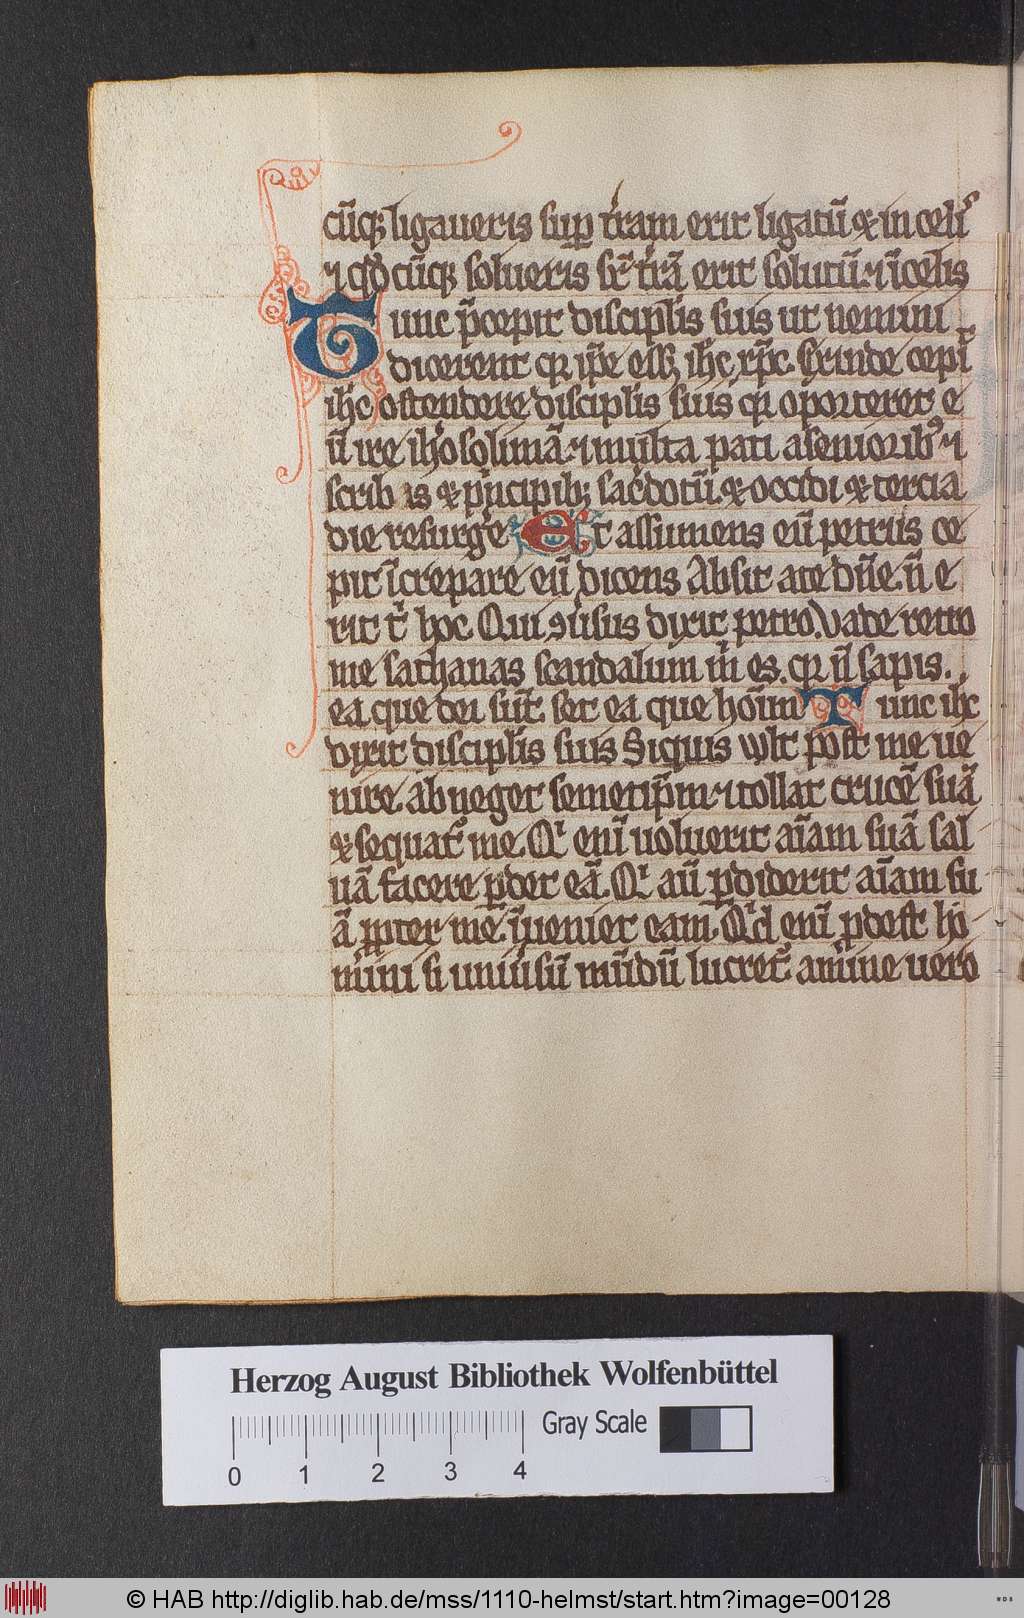 cūq; ligaueris sup̄ t̄ram erit ligatū & in celi᷒
⁊ qd̄cūq; solueris sr̄ t̄rā erit solutū. ⁊ ī celis
Tunc p̄cepit discipl̄is suis ut nemini
dicerent qꝛ ip̄e eēt ih̄c xp̄c. Exinde cepit
ih̄c ostendere discipl̄is suis qꝛ oporteret e
ū ire ih'osolimā. ⁊ multa pati a seniorib᷒ ⁊
scribis & p'ncipib; sac̄dotū. & occidi & tercia
die resurge᷒ Et assumens eū petrus ce
pit īcrepare eū dicens Absit a te dn̄e. n̄ e
rit t' hoc. Qui ꝯūsus dixit petro. Vade retro
me sathanas scandalum m' es. qꝛ n̄ sapis.
ea que dei sūt. set ea que hoīm Tunc ih̄c
dixit discipl̄is suis Siquis wlt post me ue
nire. abneget semetip̄m. ⁊ tollat crucē suā
& sequat᷑ me. Qi enī uoluerit aīam suā sal
uā facere ꝑdet eā. Qi aū ꝑdiderit aīam su
ā ꝓpter me. īueniet eam. Qid enī ꝓdest ho
mini si uniūsū mūdū lucret᷑. anime uero
Herzog August Bibliothek Wolfenbüttel
Gray Scale
0 1 2 3 4
© HAB http://diglib.hab.de/mss/1110-helmst/start.htm?image=00128